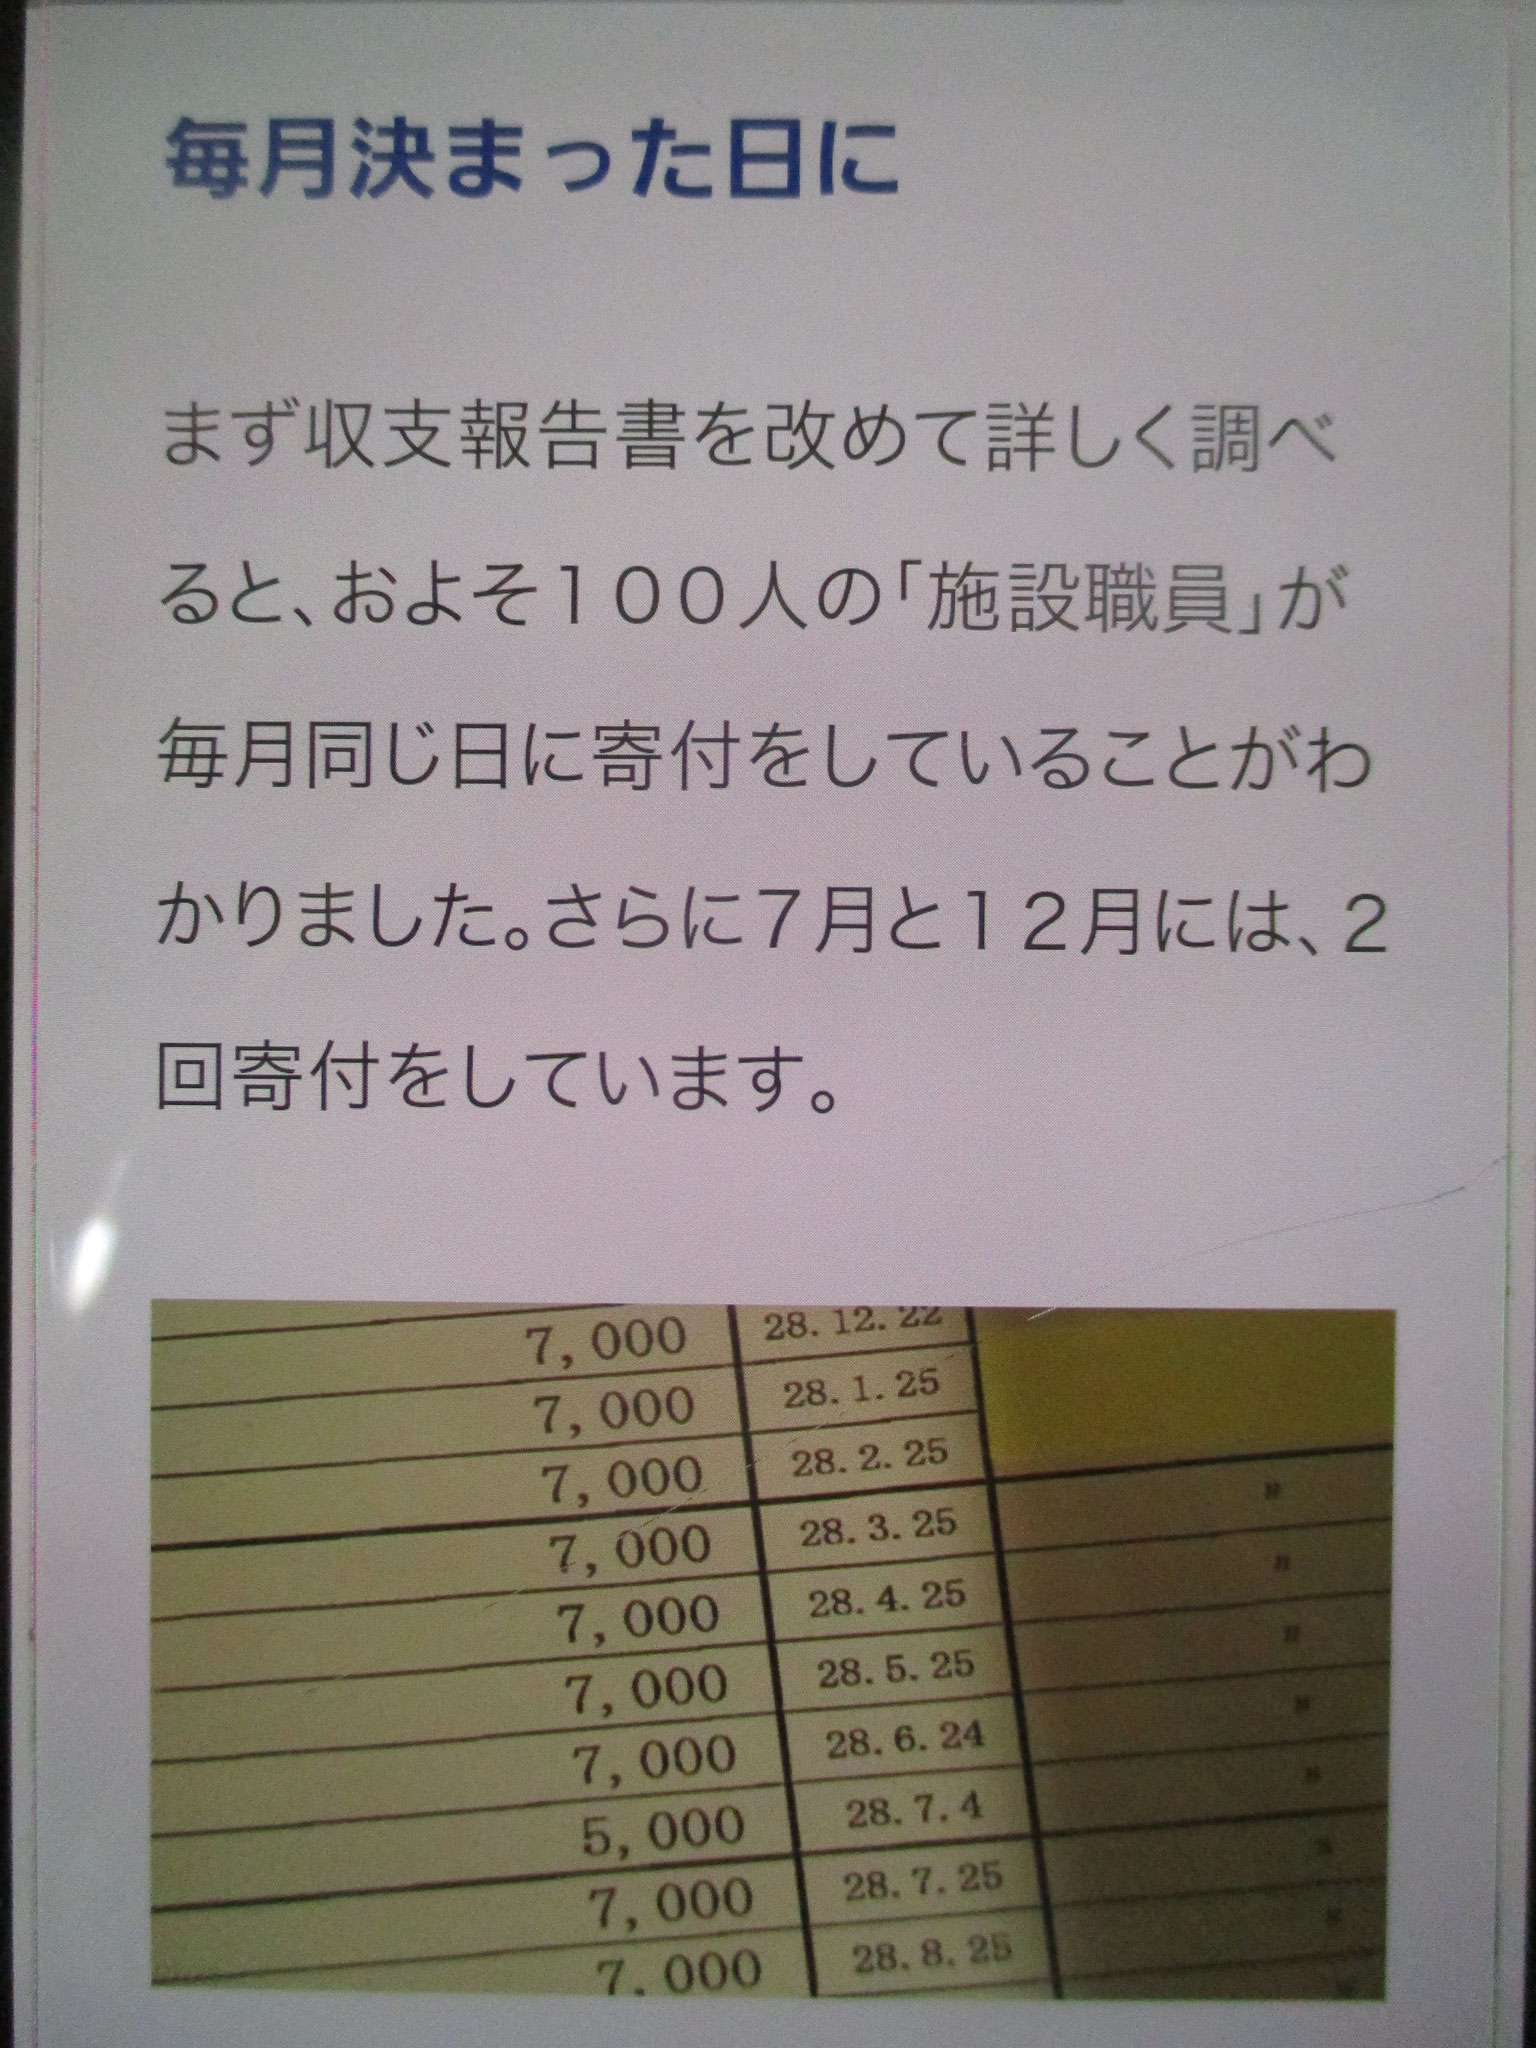 毎月決まった日に
まず収支報告書を改めて詳しく調べ
ると、およそ１００人の「施設職員」が
毎月同じ日に寄付をしていることがわ
かりました。さらに７月と１２月には、２
回寄付をしています。
7,000 28.12.22
7,000 28.1.25
7,000 28.2.25
7,000 28.3.25 〃
7,000 28.4.25 〃
7,000 28.5.25 〃
7,000 28.6.24 〃
5,000 28.7.4 〃
7,000 28.7.25 〃
7,000 28.8.25 〃
〃